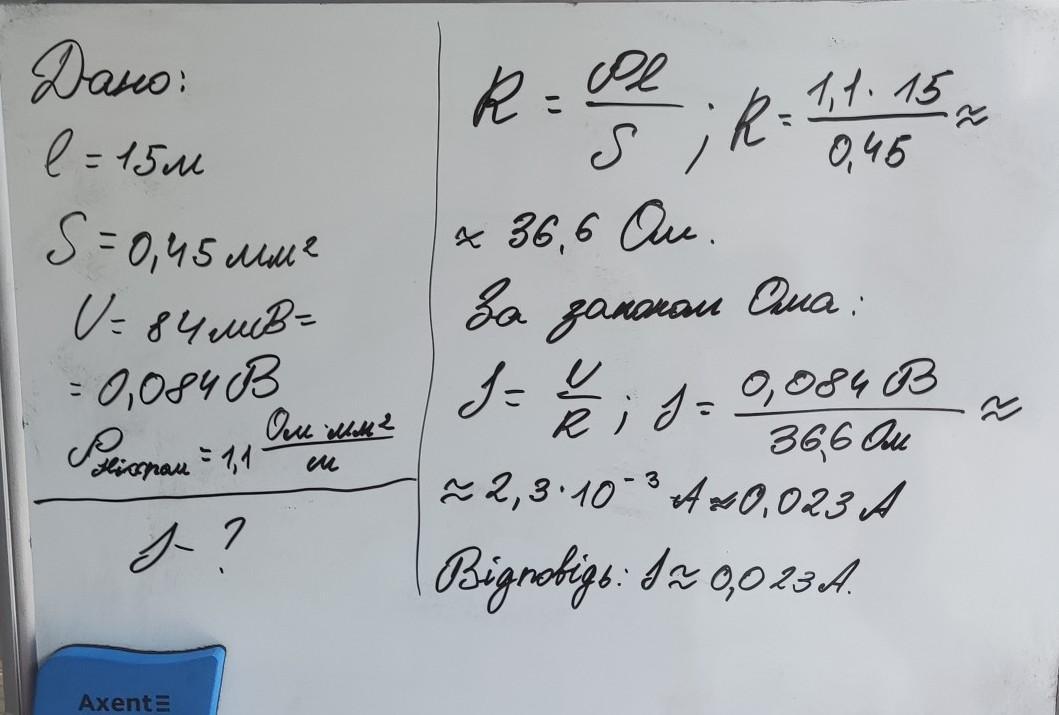 Дано:
l = 15м
S = 0,45 мм²
U = 84 мВ =
= 0,084 В
ρніхром = 1,1 Ом·мм²/м
I - ?
R = ρl/S ; R = 1,1 · 15/0,45 ≈
≈ 36,6 Ом.
За законом Ома:
I = U/R ; I = 0,084 В/36,6 Ом ≈
≈ 2,3·10⁻³ А ≈ 0,023 А
Відповідь: I ≈ 0,023 А.
Axent